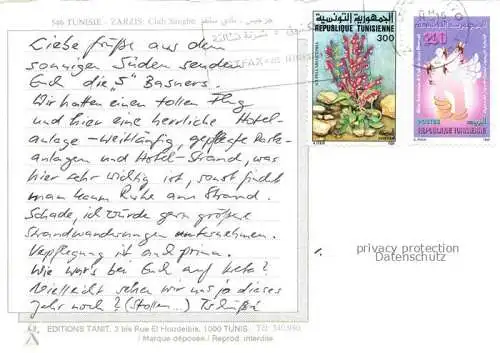 546 TUNISIE - ZARZIS: Club Sangho
جرجيس - نادي سانغو
Liebe Grüße aus dem
sonnigen Süden senden
Euch die „5“ Basners.
Wir hatten einen tollen Flug
und hier eine herrliche Hotel-
anlage - weitläufig, gepflegte Park-
anlagen und Hotel-Strand, was
hier sehr wichtig ist, sonst findet
man kaum Ruhe am Strand.
Schade, ich würde gern größere
Strandwanderungen unternehmen.
Verpflegung ist auch prima.
Wie war's bei Euch auf
Vielleicht sehen wir uns ja dieses
Jahr noch? (Stollen...) Tschüßi
EDITIONS TANIT. 3 bis Rue El Houdeibia. 1000 TUNIS
Marque déposée / Reprod. interdite
الجمهورية التونسية
REPUBLIQUE TUNISIENNE
300
الجمهورية التونسية
240
POSTES
REPUBLIQUE TUNISIENNE
privacy protection
Datenschutz